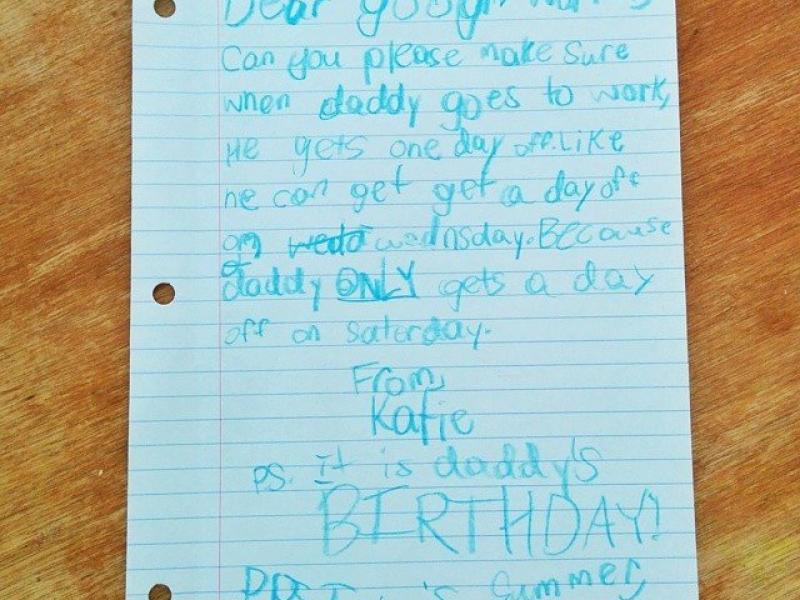 Dear google
Can you please make sure
when daddy goes to work,
He gets one day off. Like
he can get get a day off
on wednsday. Because
daddy ONLY gets a day
off on saterday.
From,
Katie
PS. It is daddy's
BIRTHDAY!
Summer,